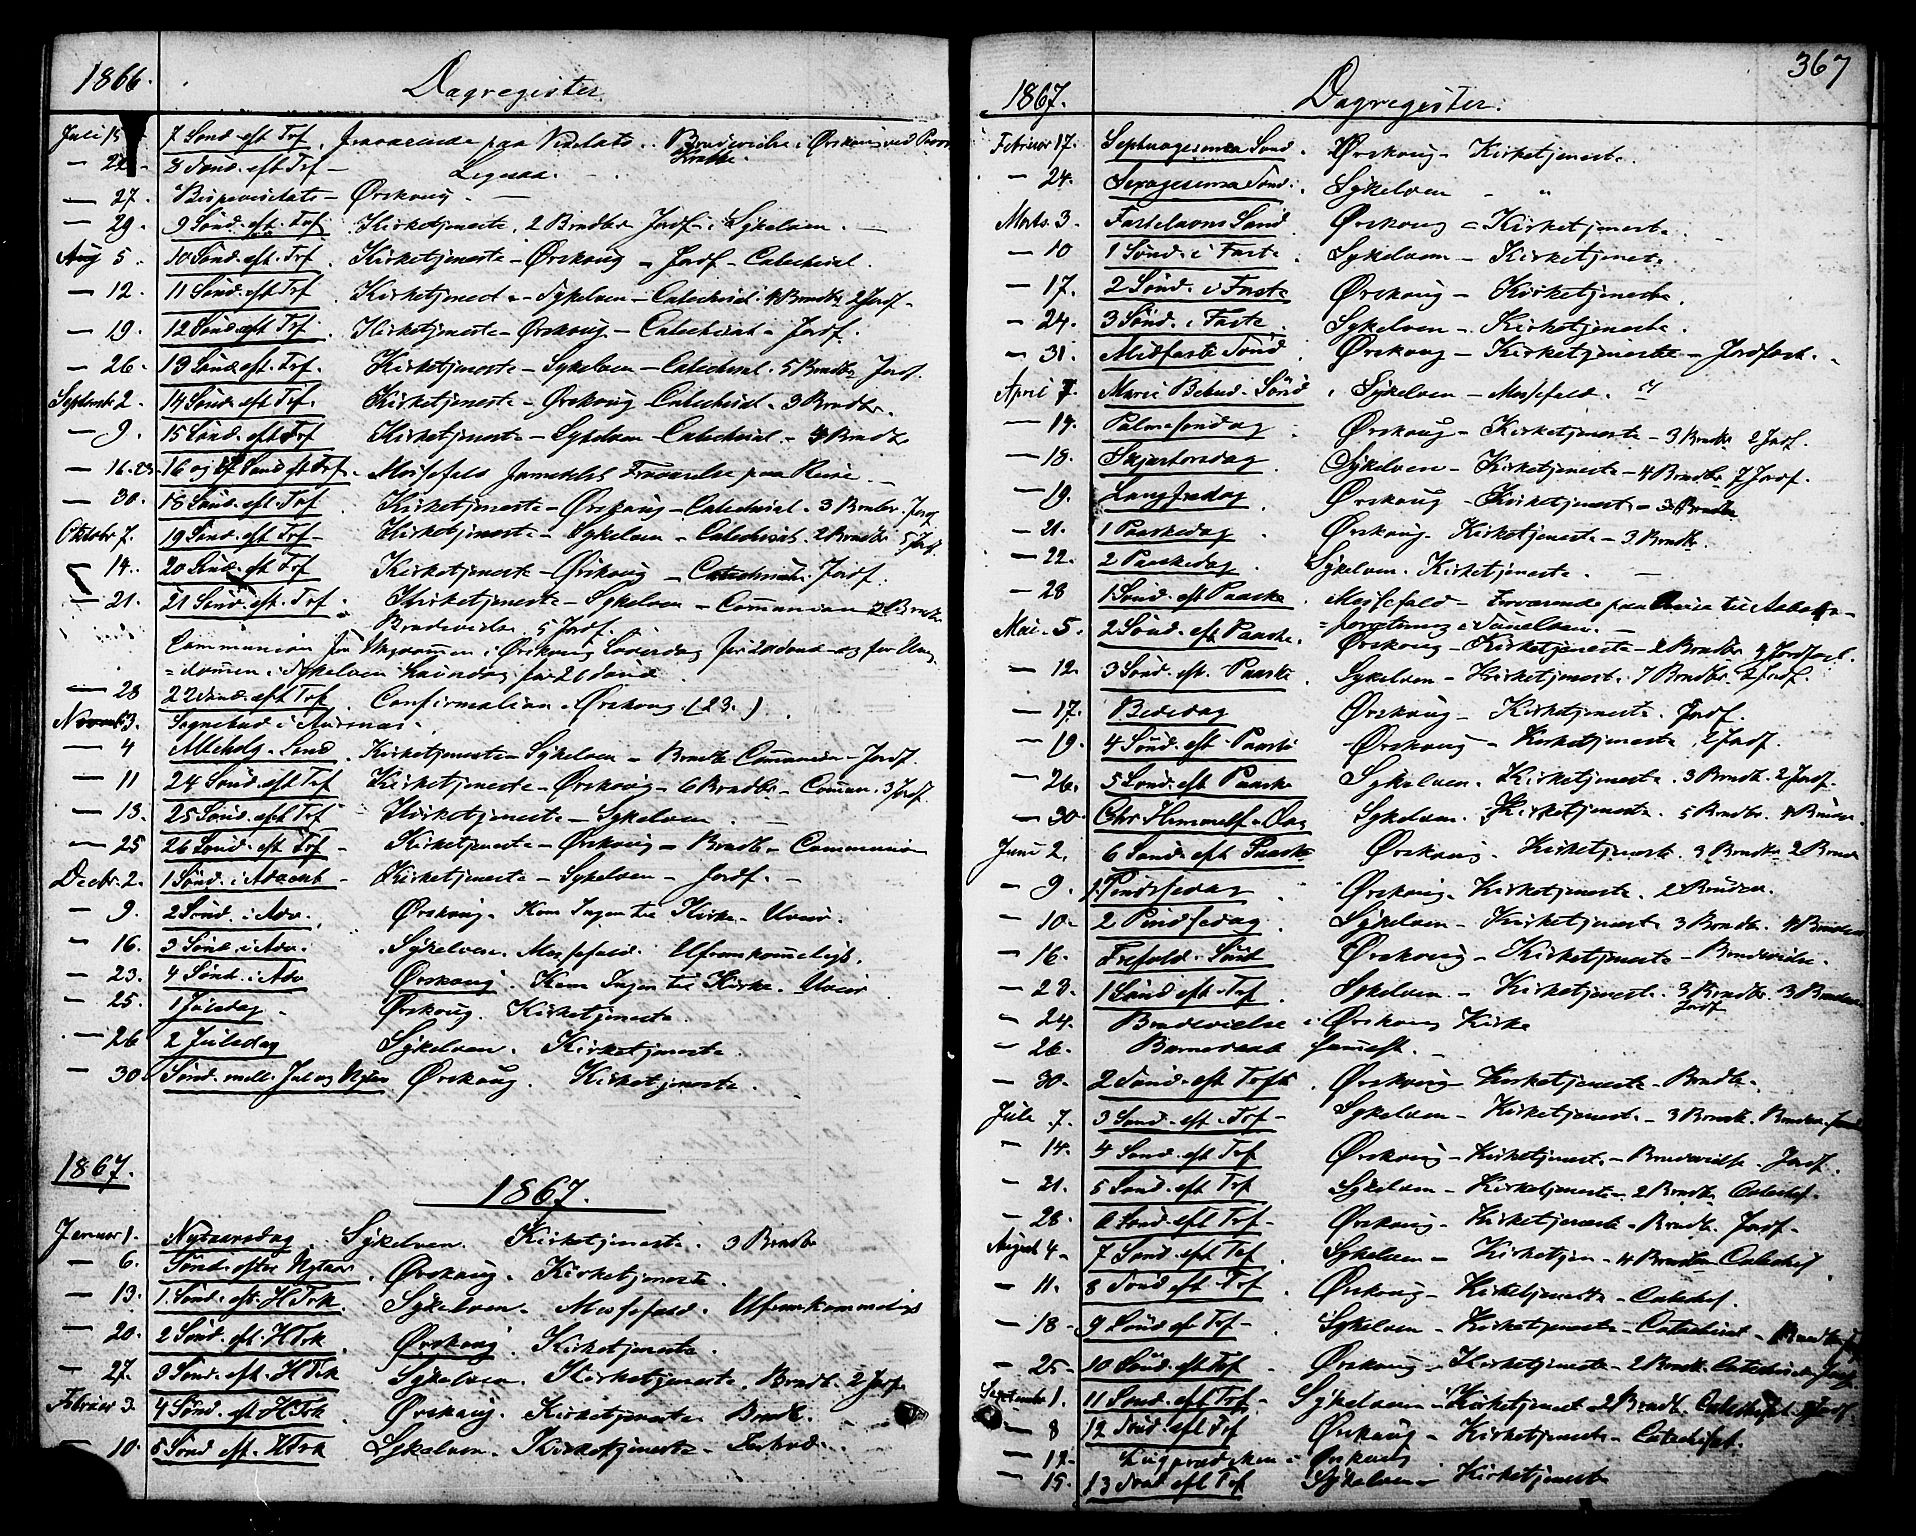 1866.
Dagregister
Juli 15 7 Sønd. eft Trf. fraværende paa Visitats. Brudevielse i Ørskoug ved
— 22 8 Sønd. eft Trf —
— 27. Bispevisitats – Ørskoug. —
— 29. 9 Sønd. eft. Trf. Kirketjeneste. 2 Brndbr Jordf – i Sykelven. —
Aug 5. 10 Sønd. eft. Trf. Kirketjeneste – Ørskoug – Jordf – Catechisat.
— 12. 11 Sønd. eft Trf Kirketjeneste – Sykelven – Catechisat. 4 Brndbr 2 Jordf –
— 19. 12 Sønd. eft Trf. Kirketjeneste – Ørskoug – Catechisat – Jordf.
— 26. 13 Sønd. eft. Trf. Kirketjeneste – Sykelven – Catechisat. 5 Brndbr Jordf.
Septembr. 2. 14 Sønd. eft Trf. Kirketjeneste – Ørskoug – Catechisat. 3 Brndbr.
— 9. 15 Sønd. eft Trf Kirketjeneste – Sykelven – Catechisat – 4 Brndbr
— 16. 23. 16 og 17 Sønd eft Trf. Messefald formedelst Fraværelse paa Reise. —
— 30. 18 Sønd. eft Trf Kirketjeneste – Ørskoug – Catechisat. 3 Brndbr. Jordf
Oktobr 7. 19 Sønd. eft Trf – Kirketjeneste – Sykelven – Catechisat. 2 Brndbr 5 Jordf
— 14. 20 Sønd. eft Trf Kirketjeneste – Ørskoug – Catechisat. Jordf.
— 21. 21 Sønd. eft. Trf. Kirketjeneste – Sykelven – Communion 2 Brndbr
Brudevielse 5 Jordf.
Communion for Ungdommen i Ørskoug Løverdag før 20 Sønd – og for Ung
=dommen i Sykelven Løverdag før 26 Sønd.
— 28 22 Sønd. eft Trf. Confirmation. Ørskoug. (23.)
Novembr 3. Sognebud i
— 4 Allehelg. Sønd. Kirketjeneste – Sykelven – Brndbr Communion – Jordf.
— 11 24 Sønd. eft Trf Kirketjeneste – Ørskoug – 6 Brndbr – Commun. 3 Jordf.
— 13. 25 Sønd. eft Trf – Kirketjeneste – Sykelven. —
— 25 26 Sønd. eft Trf – Kirketjeneste – Ørskoug – Brndbr – Communion
Decbr. 2. 1 Sønd. i Advent – Kirketjeneste – Sykelven – Jordf. –
— 9. 2 Sønd. i Adv. Ørskoug. Kom Ingen til Kirke. Uveir.
— 16. 3 Sønd. i Adv. Sykelven. Messefald. Ufremkommeligt.
— 23. 4 Sønd. i Adv Ørskoug. Kom Ingen til Kirke. Uveir
— 25. 1 Juledag. Ørskoug. Kirketjeneste.
— 26 2 Juledag Sykelven. Kirketjeneste.
— 30. Sønd. mell. Jul og Nytaar Ørskoug. Kirketjeneste.
1867.
1867.
Januar 1. Nytaarsdag. Sykelven. Kirketjeneste. 3 Brndbr
— 6. Sønd. efter Nytaar. Ørskoug. Kirketjeneste.
— 13. 1 Sønd. eft. H Trk. Sykelven. Messefald. Ufremkommeligt
— 20. 2 Sønd. eft. H Trk. Ørskoug. Kirketjeneste.
— 27. 3 Sønd. eft. H Trk Sykelven. Kirketjeneste. Brndbr. 2 Jordf.
Februar 3. 4 Sønd. eft H Trk. Ørskoug. Kirketjeneste. Brndbr. –
— 10. 5 Sønd eft. H Trk Sykelven. Kirketjeneste –
367
1867.
Dagregister.
Februar 17. Septuagesima Sønd. Ørskoug – Kirketjeneste.
— 24. Sexagesima Sønd. Sykelven – "
Marts 3. Fastelavns Sønd. Ørskoug – Kirketjeneste.
— 10 1 Sønd. i Faste. Sykelven – Kirketjenest.
— 17. 2 Sønd. i Faste Ørskoug – Kirketjeneste.
— 24. 3 Sønd. i Faste. Sykelven – Kirketjeneste.
— 31. Midfaste Sønd. Ørskoug – Kirketjeneste – Jordfæst. –
April 7. Marie Bebud. Sønd. Sykelven – Messefald.
— 14. Palmesøndag Ørskoug – Kirketjeneste – 3 Brndbr 2 Jordf.
— 18. Skjertorsdag Sykelven – Kirketjeneste – 4 Brndbr 7 Jordf.
— 19. Langfredag Ørskoug – Kirketjeneste – 3 Brndbr
— 21. 1 Paaskedag Ørskoug. Kirketjeneste – 3 Brndbr.
— 22. 2 Paaskedag Sykelven. Kirketjeneste. —
— 28 1 Sønd. eft Paaske. Messefald – Fraværende paa Reise til
=forretning i —
Mai. 5. 2 Sønd. eft Paaske. Ørskoug – Kirketjeneste – 2 Brndbr 9 Jordfæst.
— 12. 3 Sønd. eft. Paaske. Sykelven – Kirketjenest. 7 Brndbr. 2 Jordf.
— 17. Bededag Ørskoug – Kirketjeneste. Jordf.
— 19. 4 Sønd. eft Paaske – Ørskoug – Kirketjeneste. 2 Jordf.
— 26. 5 Sønd. eft Paaske Sykelven. Kirketjeneste. 3 Brndbr. 2 Jordf.
— 30. Chr Himmelf. Dag Sykelven. Kirketjeneste. 5 Brndbr.
Juni 2. 6 Sønd. eft Paaske Ørskoug. Kirketjenest. 3 Brndbr 2
— 9. 1 Pindsedag Ørskoug. Kirketjeneste. 2
— 10. 2 Pindsedag. Sykelven – Kirketjenest 3 Brndbr.
— 16. Trefold. Sønd Ørskoug – Kirketjeneste – Brudevielse.
— 23. 1 Sønd eft. Trf. Sykelven. – Kirketjenest. 3 Brndbr. 3
Jordf
— 24. Brudevielse i Ørskoug Kirke
— 26. Barnedaab sammest. –
— 30. 2 Sønd. eft Trft. Ørskoug – Kirketjeneste – Brndbr.
Juli 7. 3 Sønd. eft. Trf – Sykelven – Kirketjeneste – 3 Brndbr.
— 14. 4 Sønd. eft Trf Ørskoug – Kirketjenest. – Brudevielse. Jordf.
— 21. 5 Sønd. eft Trf Sykelven – Kirketjeneste – 2 Brndbr Catechis.
— 28. 6 Sønd. eft Trf – Ørskoug – Kirketjeneste – Brndbr. Jordf –
August 4 – 7 Sønd. eft Trf. Sykelven – Kirketjen – 4 Brndbr Catechis.
— 11. 8 Sønd eft Trf. Ørskoug – Kirketjeneste – Catechis.
— 18 – 9 Sønd eft Trf – Sykelven – Kirketjeneste – Catechisat –
— 25 – 10 Sønd. eft Trf – Ørskoug – Kirketjeneste – 2 Brndbr. Catechisat
September 1. 11 Sønd. eft Trf – Sykelven – Kirketjenest – 2 Brndbr. Catechisat.
— 8 12 Sønd eft Trf Ørskoug – Kirketjeneste – Catechisat.
— 12 – i Ørskoug
— 15. 13 Sønd eft Trf Sykelven – Kirketjeneste